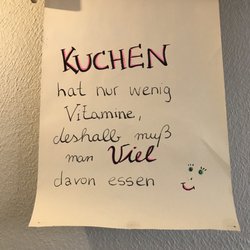 KUCHEN
hat nur wenig
Vitamine,
deshalb muß
man Viel
davon essen